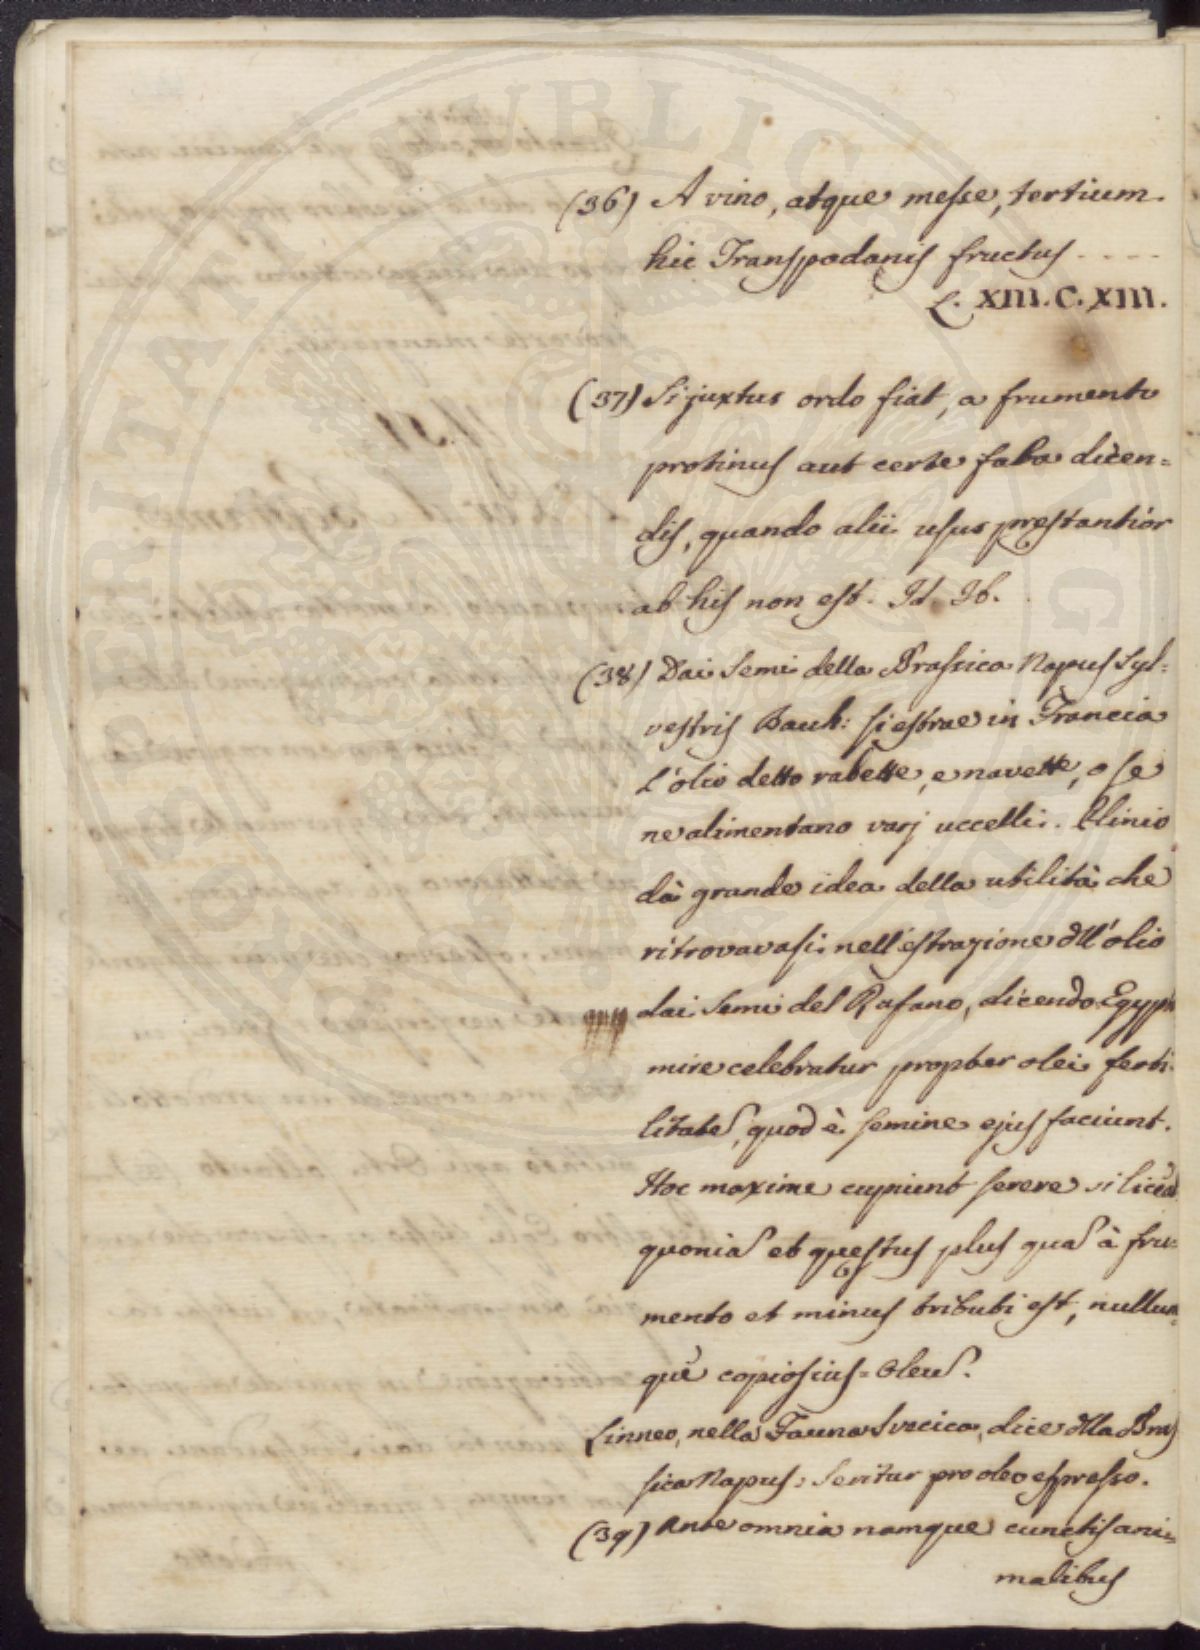 (36) A vino, atque messe, tertium
hic Transpadanis fructus ....
L. XIII. C. XIII.
(37) Si juxtus ordo fiat, a frumento
protinus aut certe faba dicen=
dis, quando alii usus prestantior
ab his non est. Id Ib.
(38) Dai Semi della Brassica Napus Syl=
vestris Bauh: si estrae in Francia
l'olio detto rabette, e navette, o se
ne alimentano varj uccelli. Plinio
dà grande idea della utilità che
ritrovavasi nell'estrazione dell'olio
dai Semi del Rafano, dicendo: Egypti
mire celebratur propter olei ferti
litate, quod è semine ejus faciunt.
Hoc maxime cupiunt serere si liceat
quonia et questus plus qua à fru=
mento et minus tributi est, nullum=
què copiosius = Oleu.
Linneo, nella Fauna Svecica, dice della Bras
sica Napus: Seritur pro oleo espresso.
(39) Ante omnia namque cunctis ani=
malibus